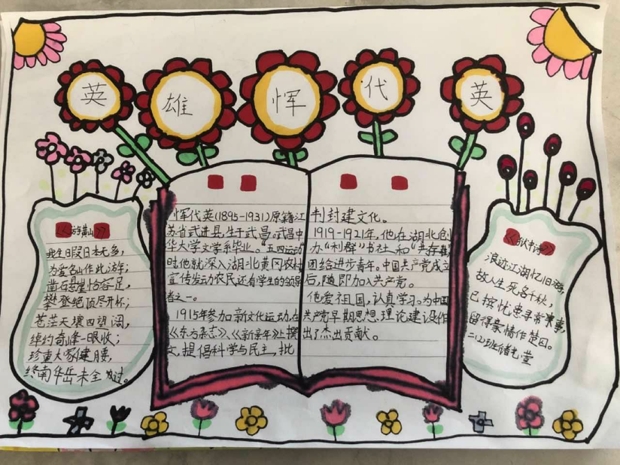 英雄恽代英
恽代英(1895-1931)原籍江
苏省武进县,生于武昌。武昌中
华大学文学系毕业。"五四运动
时他就深入湖北黄冈农村
宣传发动农民还者学生的领导
者之一。
1915年参加新文化运动,在
《东方杂志》、《新青年》上撰
文,提倡科学与民主,批
判封建文化。
1919-1921年,他在湖北创
办"利群"书社和"共存社
团结进步青年。中国共产党成立
后,随即加入共产党。
他爱祖国,认真学习。为中国
共产党早期思想理论建设作
出了杰出贡献。
我生日日本无多,
为爱名山作此游;
凿石
攀登绝顶尽开怀;
苍茫天壤四望阔,
绰约奇峰一眼收;
珍重大家健
终南华岳未全
浪迹江湖忆旧游,
故人生死各千秋,
已摈忧患寻常事,
留得豪情作楚囚。
二(2)班